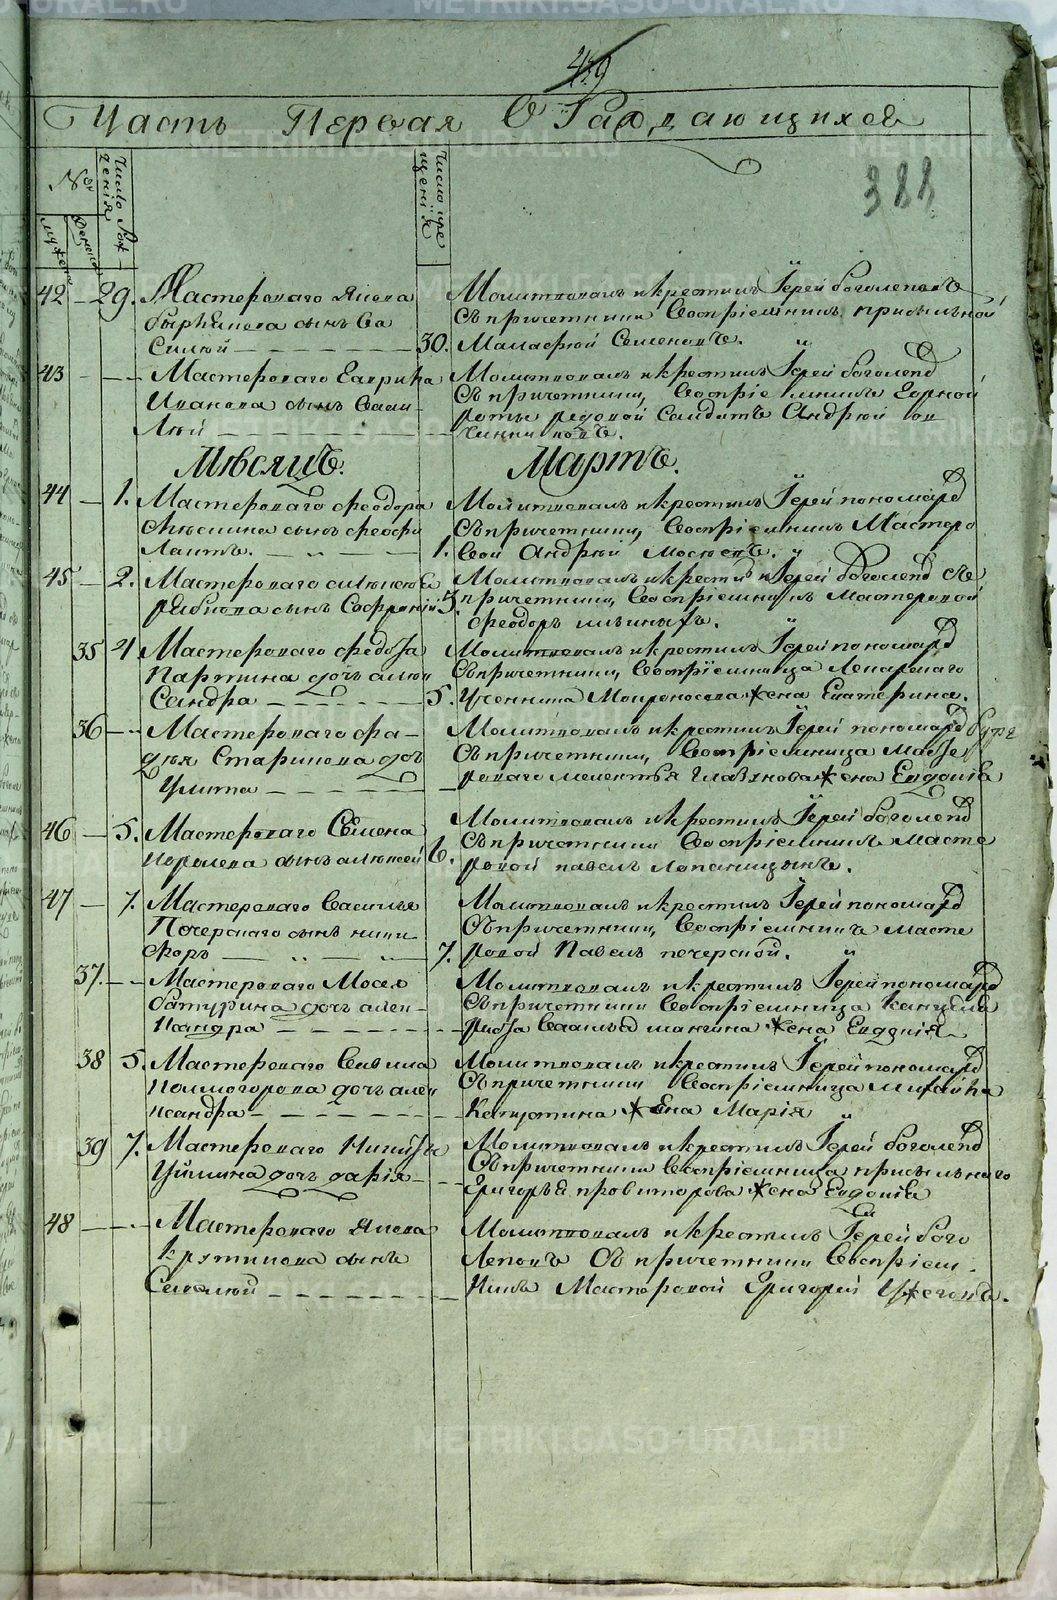 49
Часть Первая О Раждающихся
388
№
Число Рож
денія
Число кре
щенія
мужеска
женска
42 - 29. Мастероваго Якова
сынъ Ва
силій
30.
Молитвовалъ и крестилъ Іерей боголеповъ
Съ причетники Воспріемникъ присыльной
Маласфей Семеновъ.
43 Мастероваго Гаврила
Иванова сынъ Васи-
лей
Молитвовалъ и крестилъ Іерей боголепо
Съ причетники, Воспріемникъ Горной
роты рядовой Солдатъ Андрей
Месяцъ. Мартъ.
44 - 1. Мастероваго Феодора
сынъ Феофи
лактъ. 1.
Молитвовалъ и крестилъ Іерей пономарев
Съ причетники, Воспріемникъ Мастеро
вой Андрей Мосеевъ.
45 - 2. Мастероваго Алексея
Рябкова сынъ Софроній 3.
Молитвовалъ и крестилъ Іерей боголепо съ
причетники, Воспріемникъ Мастеровой
Феодоръ ильиныхъ.
35 4 Мастероваго Федора
Паркина дочь алек
сандра 5.
Молитвовалъ и крестилъ Іерей пономарев
Съ причетники, Воспріемница Лекарскаго
Ученика жена Екатерина.
36 Мастероваго Фа-
дея Старикова дочь
Улита
Молитвовалъ и крестилъ Іерей пономарев
Съ причетники, Воспріемница Масте
роваго мелентья Глазукова жена Евдокія
46 - 5. Мастероваго Семена
Королева сынъ алексей 6.
Молитвовалъ и крестилъ Іерей боголепо
Съ причетники Воспріемникъ Масте
ровой павелъ Лопаницынъ.
47 - 7. Мастероваго Василья
Печерскаго сынъ ники
форъ 7.
Молитвовалъ и крестилъ Іерей пономарев
Съ причетники, Воспріемникъ Масте
ровой Павелъ печерской.
37. Мастероваго Мосея
батурина дочь алек-
сандра
Молитвовалъ и крестилъ Іерей пономарев
Съ причетники Воспріемница Канцеля
риста жена Евдокія
38 5. Мастероваго Савина
Колмогорова дочь алек
сандра
Молитвовалъ и крестилъ Іерей пономарев
Съ причетники Воспріемница михайла
Капустина жена Марія
39 7. Мастероваго Никиты
дочь дарія
Молитвовалъ и крестилъ Іерей боголепо
Съ причетники Воспріемница присыльнаго
Григорья провиторова жена Евдокія
48 Мастероваго Якова
Крутикова сынъ
Савелей
Молитвовалъ и крестилъ Іерей бого
леповъ Съ причетники Воспріем-
никъ Мастеровой Григорей Ужеговъ.
METRIKI.GASO-URAL.RU